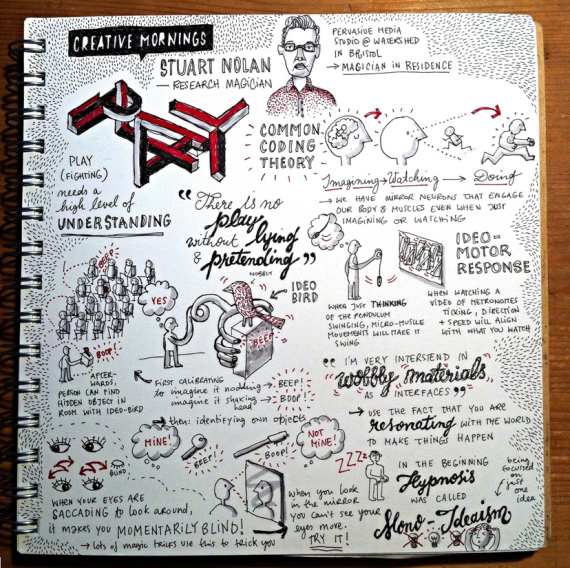 CREATIVE MORNINGS
STUART NOLAN
— RESEARCH MAGICIAN
PERVASIVE MEDIA
STUDIO @ WATERSHED
IN BRISTOL
→ MAGICIAN IN RESIDENCE
PLAY
PLAY
(FIGHTING)
needs a
high level of
UNDERSTANDING
COMMON
CODING
THEORY
Imagining → Watching → Doing
→ WE HAVE MIRROR NEURONS THAT ENGAGE
OUR BODY & MUSCLES EVEN WHEN JUST
IMAGINING OR WATCHING
"There is no
play
without lying
& pretending"
WOBBLY
← IDEO
BIRD
BEEP!
YES
BEEP!
BOOP!
AFTER-
WARDS,
PERSON CAN FIND
HIDDEN OBJECT IN
ROOM WITH IDEO-BIRD
FIRST CALIBRATING
→ imagine it nodding → BEEP!
imagine it shaking → BOOP!
head
→ then: identifying own objects
MINE!
BEEP!
BOOP!
NOT
MINE!
IDEO-
MOTOR
RESPONSE
WHEN JUST THINKING
OF THE PENDULUM
SWINGING, MICRO-MUSCLE
MOVEMENTS WILL MAKE IT
SWING
WHEN WATCHING A
VIDEO OF METRONOMES
TICKING, DIRECTION
+ SPEED WILL ALIGN
WITH WHAT YOU WATCH
"I'M VERY INTERSTEND IN
wobbly materials
AS INTERFACES"
→ USE THE FACT THAT YOU ARE
resonating WITH THE WORLD
TO MAKE THINGS HAPPEN
BLIND
WHEN YOUR EYES ARE
SACCADING to look around,
it makes you MOMENTARILY BLIND!
→ lots of magic tricks use this to trick you
when you look
in the mirror
you can't see your
eyes move.
TRY IT!
ZZZ
IN THE BEGINNING
Hypnosis
WAS CALLED
Mono-Ideaism
being
focused
on
just
one
idea